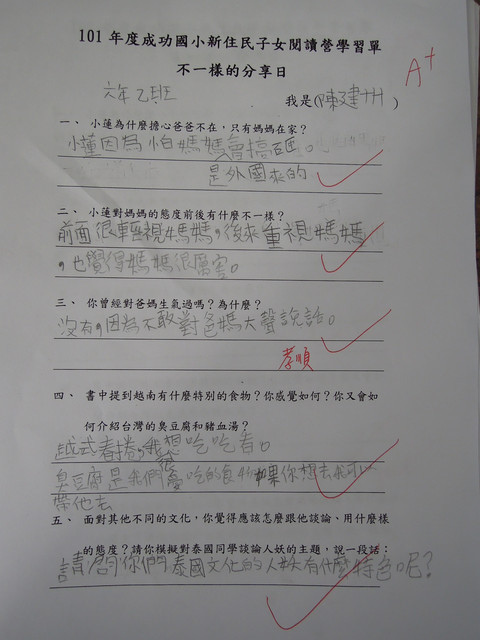 101 年度成功國小新住民子女閱讀營學習單
不一樣的分享日
A+
六年乙班 我是(陳建卅)
一、 小蓮為什麼擔心爸爸不在,只有媽媽在家?
小蓮因為怕媽媽會搞砸。
是外國來的
二、 小蓮對媽媽的態度前後有什麼不一樣?
前面很輕視媽媽,後來重視媽媽
,也覺得媽媽很厲害。
三、 你曾經對爸媽生氣過嗎?為什麼?
沒有,因為不敢對爸媽大聲說話。
孝順
四、 書中提到越南有什麼特別的食物?你感覺如何?你又會如
何介紹台灣的臭豆腐和豬血湯?
越式春捲,我想吃吃看。
臭豆腐是我們很愛吃的食物如果你想去我可以
帶他去
五、 面對其他不同的文化,你覺得應該怎麼跟他談論、用什麼樣
的態度?請你模擬對泰國同學談論人妖的主題,說一段話:
請問你們泰國文化的人妖有什麼特色呢?